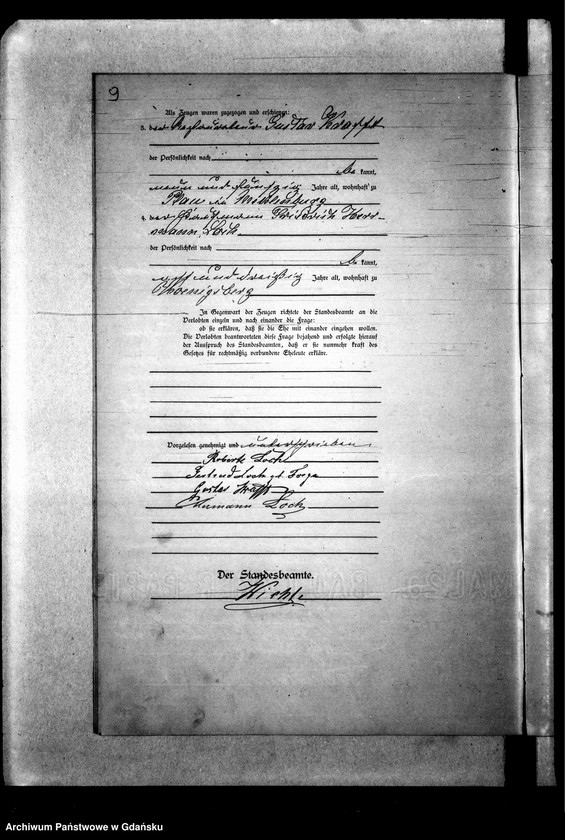 9
Als Zeugen waren zugezogen und erschienen:
3. der Restaurateur Gustav Krafft
der Persönlichkeit nach
kannt,
neun und fünfzig Jahre alt, wohnhaft zu
Plau in Mecklenburg
4. der Kaufmann Friedrich Herr-
mann Loch
der Persönlichkeit nach
kannt,
acht und dreißig Jahre alt, wohnhaft zu
Koenigsberg
In Gegenwart der Zeugen richtete der Standesbeamte an die
Verlobten einzeln und nach einander die Frage:
ob sie erklären, daß sie die Ehe mit einander eingehen wollen.
Die Verlobten beantworteten diese Frage bejahend und erfolgte hierauf
der Ausspruch des Standesbeamten, daß er sie nunmehr kraft des
Gesetzes für rechtmäßig verbundene Eheleute erkläre.
Vorgelesen, genehmigt und unterschrieben
Robert Loch
Loch
Gustav Krafft
Hermann Loch
Der Standesbeamte.
Archiwum Państwowe w Gdańsku